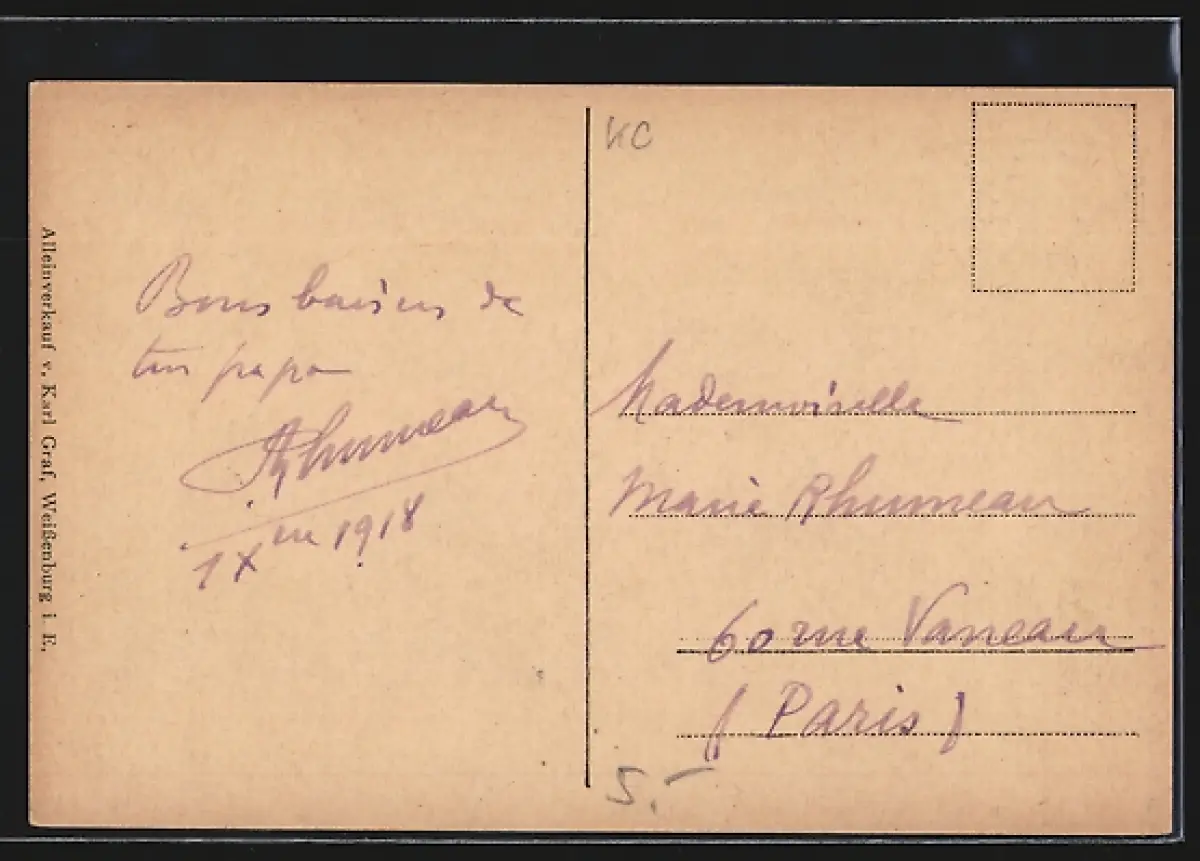 Alleinverkauf v. Karl Graf, Weißenburg i E.
Bons baisers de
ton papa
Rhumeau
1 Xbre 1918
KC
Mademoiselle
Marie Rhumeau
60 rue Vaneau
(Paris)
5.-